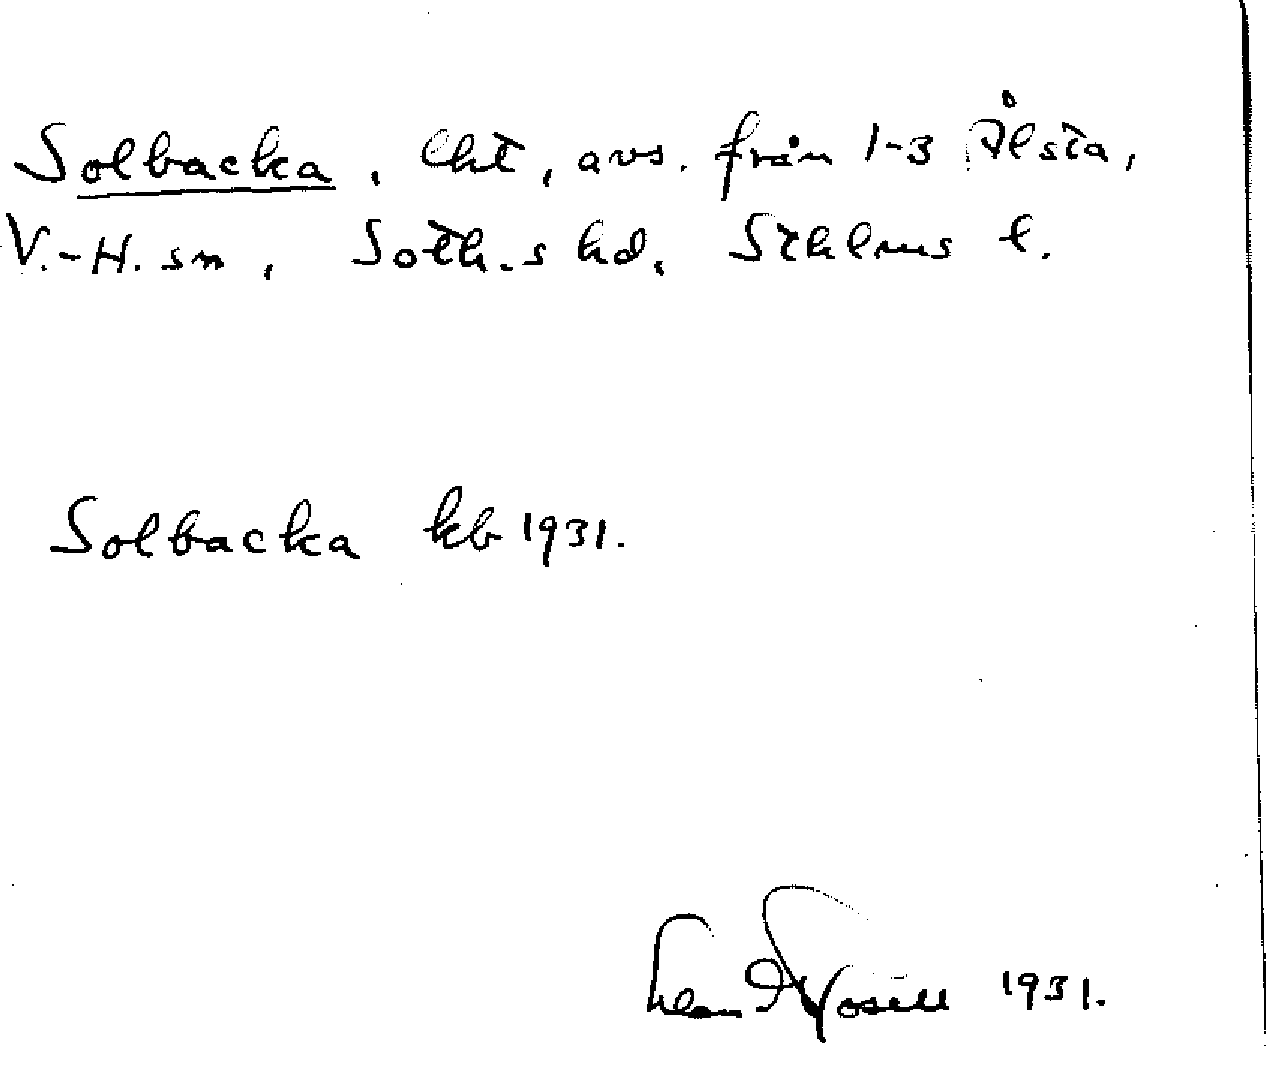 Solbacka, lht, avs. från 1-3 Ålsta,
V.-H. sn, Soth.s hd, Sthlms l.
Solbacka kb 1931.
1931.